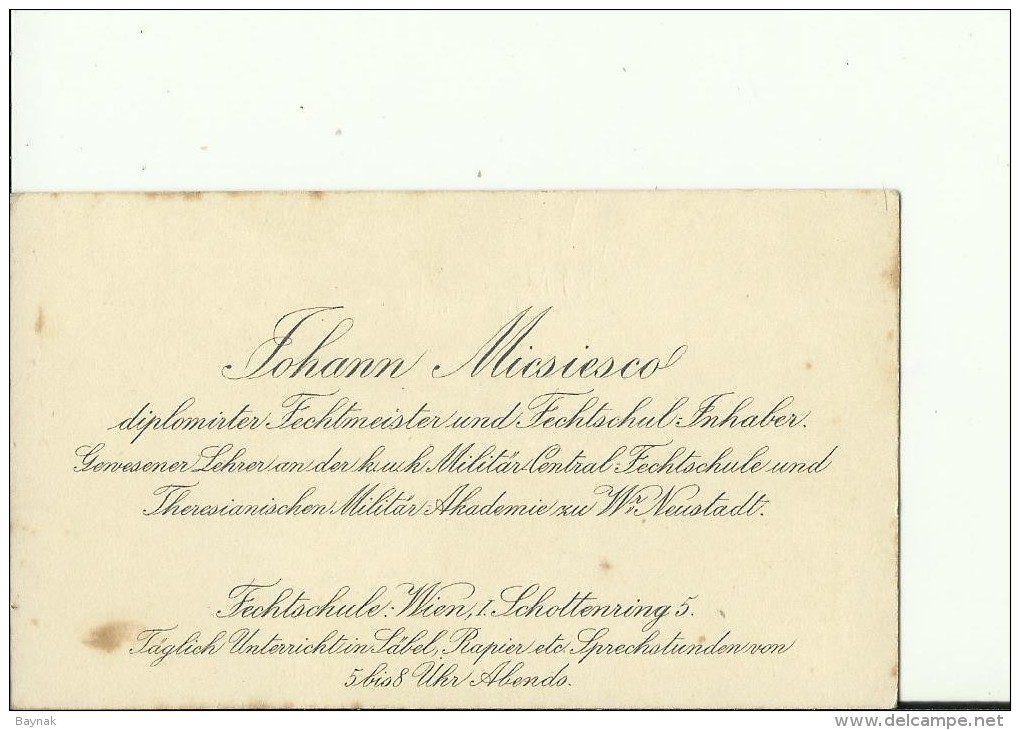 Johann Micsiesco
diplomirter Fechtmeister und Fechtschul-Inhaber.
Gewesener Lehrer an der k. u. k Militär Central-Fechtschule und
Theresianischen Militär-Akademie zu Wr. Neustadt.
Fechtschule: Wien, I. Schottenring 5.
Täglich Unterricht in Säbel, Rapier etc. Sprechstunden von
5 bis 8 Uhr Abends.
Baynak
www.delcampe.net